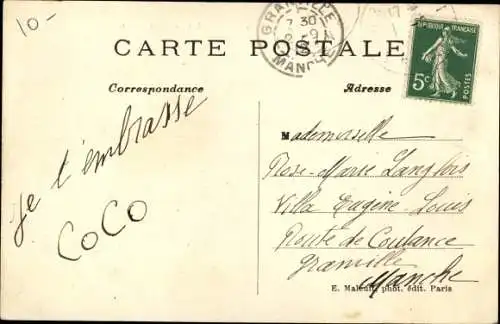 10-
CARTE POSTALE
GRANVILLE
7 30
MANCHE
REPUBLIQUE FRANÇAISE
5c
POSTES
Correspondance
Adresse
je t'embrasse
COCO
Mademoiselle
Rose-Marie Langlois
Villa Eugène-Louis
Route de Coutance
Granville
Manche
E. Maleuit, phot. édit. Paris